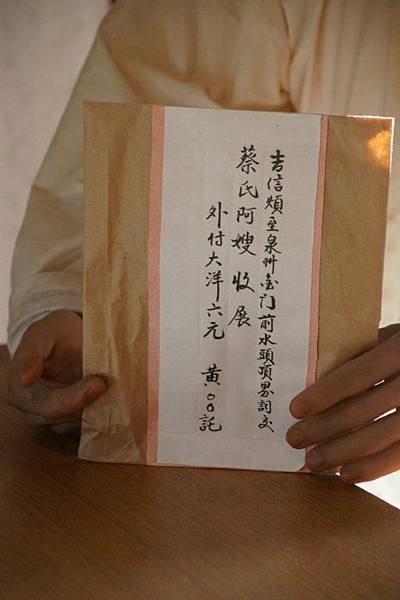 吉信煩至泉州金门前水頭頂界詞交
蔡氏阿嫂收展
外付大洋六元 黃○○託